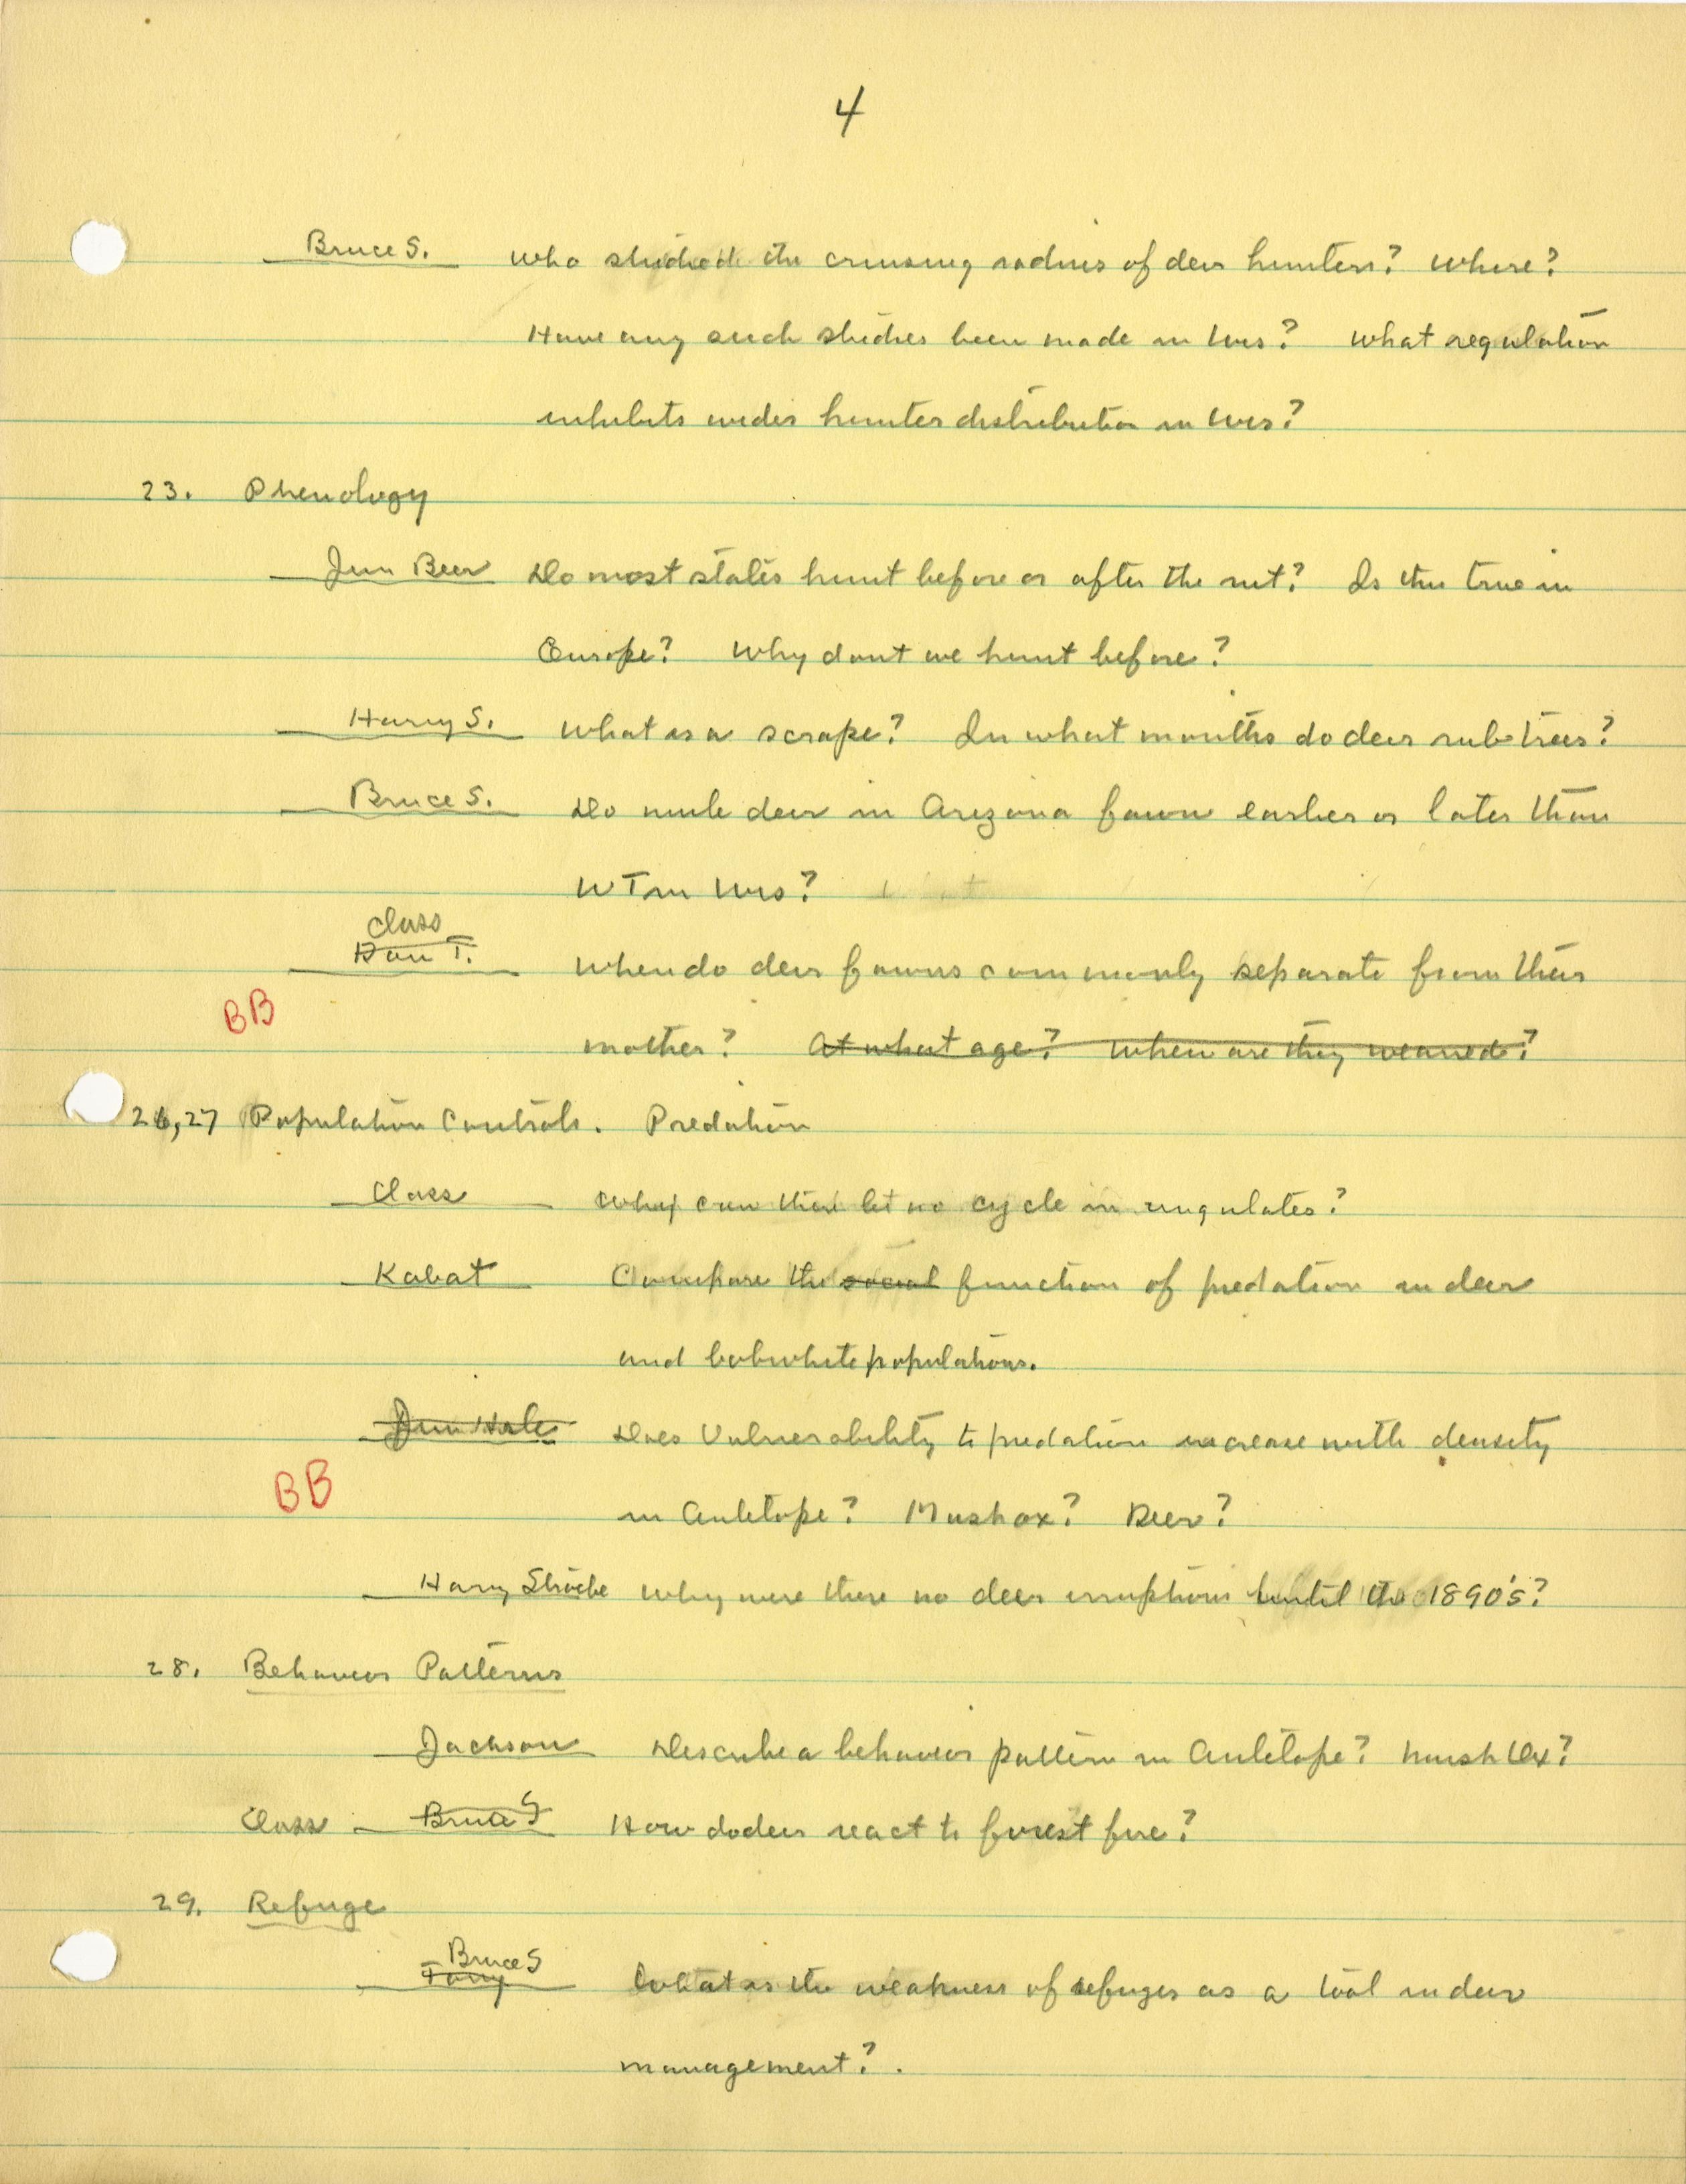 4
Bruce S. Who studied the cruising radius of deer hunters? Where?
Have any such studies been made in Wis? What regulation
inhibits wider hunter distribution in Wis?
23. Phenology
Jim Beer Do most states hunt before or after the rut? Is this true in
Europe? Why dont we hunt before?
Harry S. What is a scrape? In what months do deer rub trees?
Bruce S. Do mule deer in Arizona fawn earlier or later than
WT in Wis?
Class
Don T. When do deer fawns commonly separate from their
BB
mother? At what age? When are they weaned?
26, 27 Population Controls. Predation
Class Why can there be no cycle in ungulates?
Kabat Compare the social function of predation in deer
and bobwhite populations.
Jim Hale Does Vulnerability to predation increase with density
BB
in Antelope? Muskox? Deer?
Harry Stroebe Why were there no deer irruptions until the 1890's?
28. Behavior Patterns
Jackson Describe a behavior pattern in Antelope? Musk Ox?
Class Bruce S How do deer react to forest fire?
29. Refuge
Bruce S
What is the weakness of refuges as a tool in deer
management?.